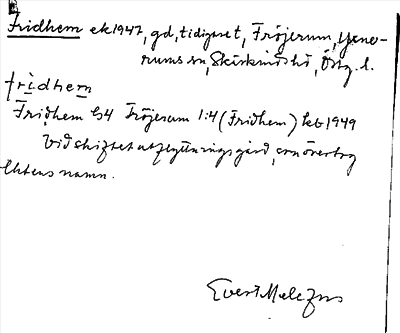 Fridhem ek 1947, gd, tidigaret, Fröjerum, Yxne-
rums sn, Skärkinds hd, Östg. l.
fridhem
Fridhem 64 Fröjerum 1:4 (Fridhem) kb 1949
Vid skiftet utflyttningsgård, som övertog
släktens namn.
Evert Melefors